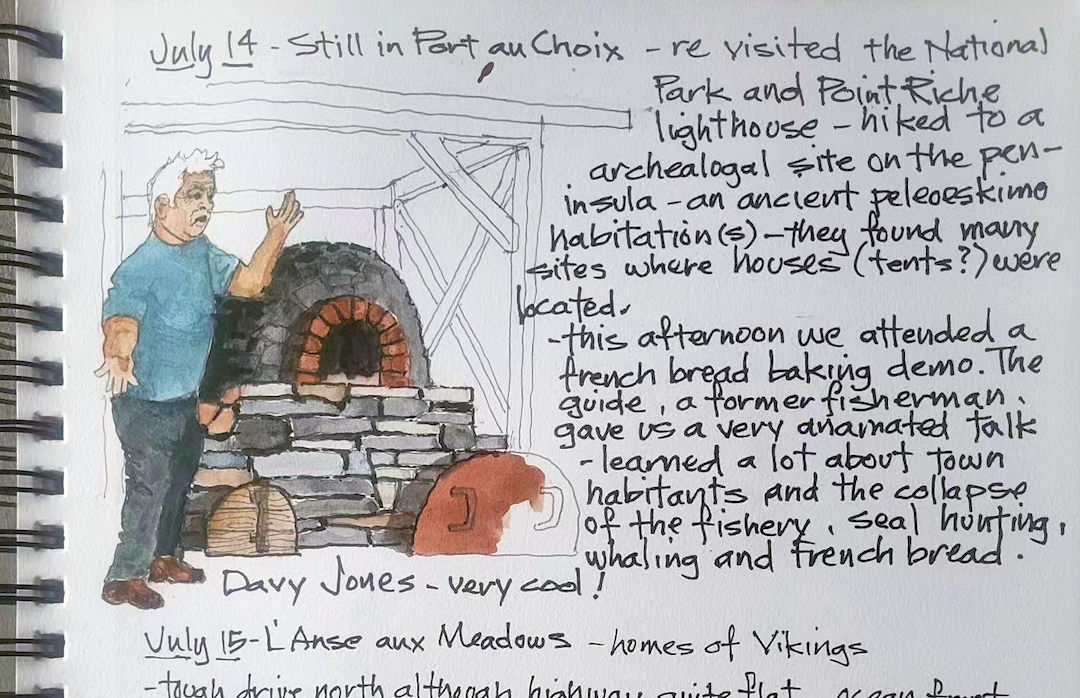 July 14 - Still in Port au Choix - re visited the National
Park and Point Riche
lighthouse - hiked to a
archealogal site on the pen-
insula - an ancient peleoeskimo
habitation(s) - they found many
sites where houses (tents?) were
located.
- this afternoon we attended a
french bread baking demo. The
guide, a former fisherman,
gave us a very anamated talk
- learned a lot about town
habitants and the collapse
of the fishery, seal hunting,
whaling and french bread.
Davy Jones - very cool!
July 15 - L'Anse aux Meadows - homes of Vikings
- tough drive north although highway quite flat